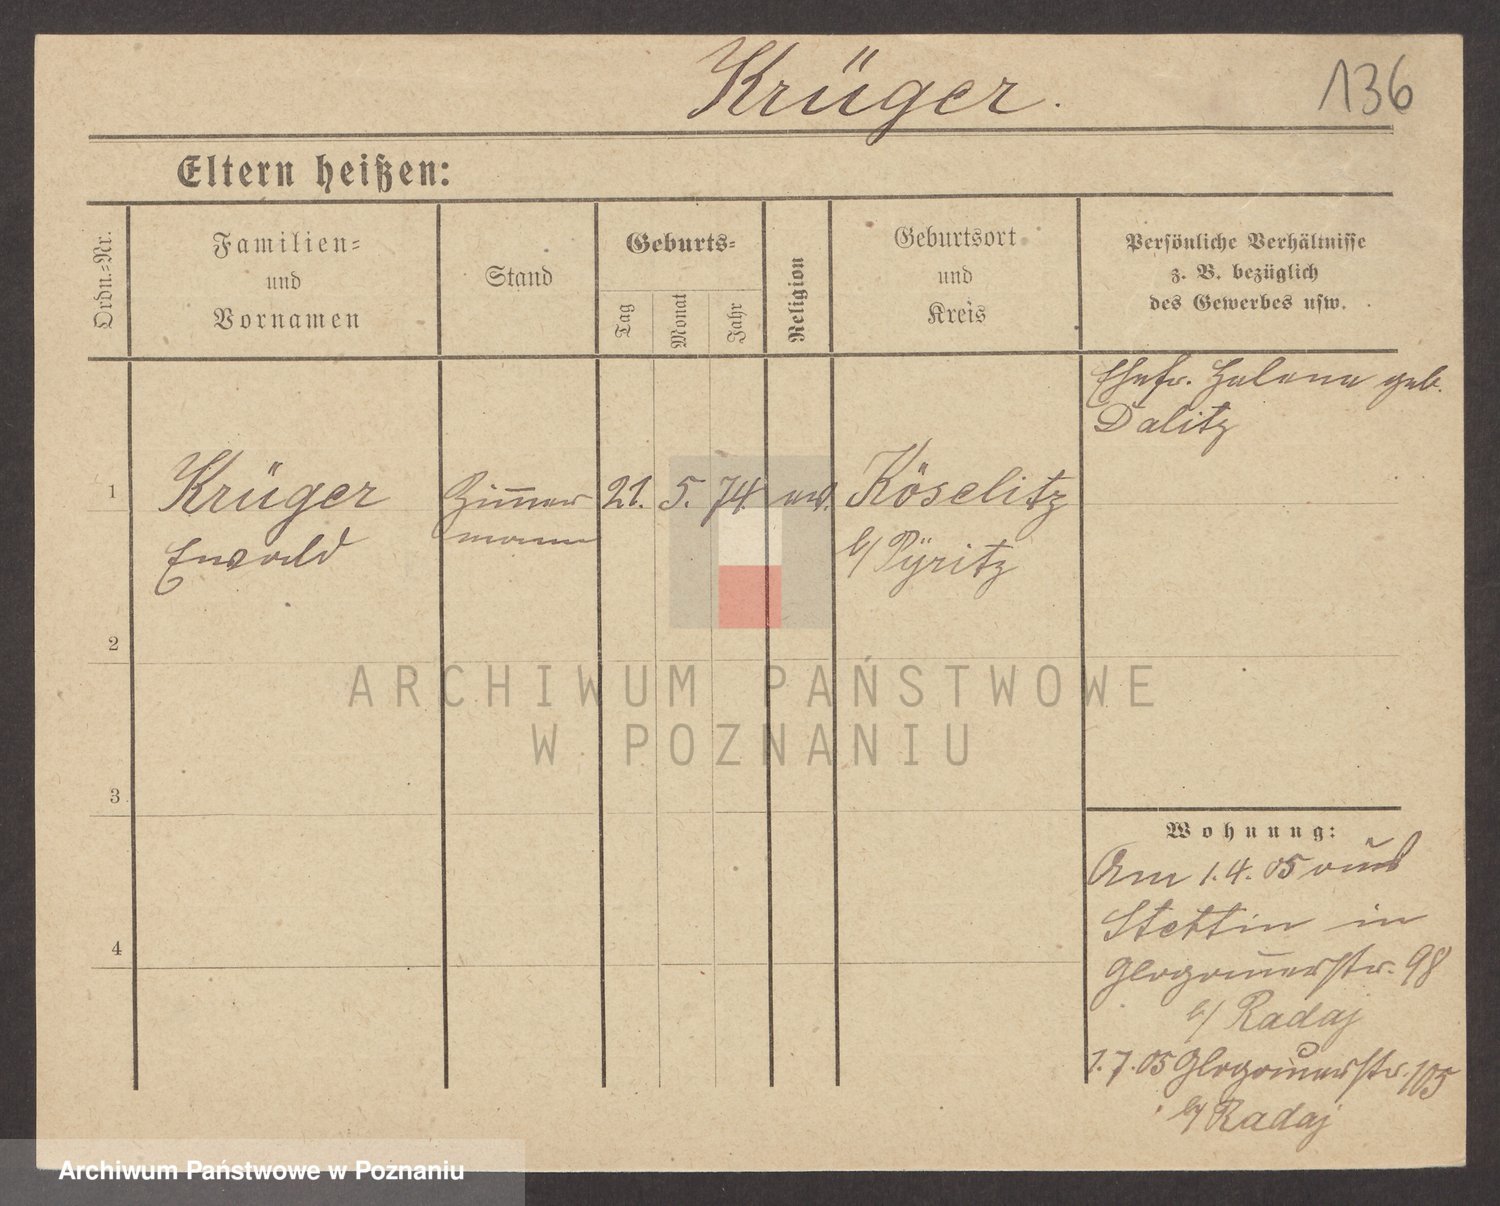 Krüger.
136
Eltern heißen:
Ordn.-Nr.
Familien-
und
Vornamen
Stand
Geburts-
Tag
Monat
Jahr
Religion
Geburtsort
und
Kreis
Persönliche Verhältnisse
z. B. bezüglich
des Gewerbes usw.
Ehefr. Helene geb.
Dalitz
1
Krüger
Ewald
Zimmer
mann
21. 5. 74
ev.
Köselitz
b/ Pyritz
2
ARCHIWUM PAŃSTWOWE
W POZNANIU
3
4
Wohnung:
Am 1.4.05 aus
Stettin in
Glogauerstr. 98
b/ Radaj
1.7.05 Glogauerstr. 105
b/ Radaj
Archiwum Państwowe w Poznaniu